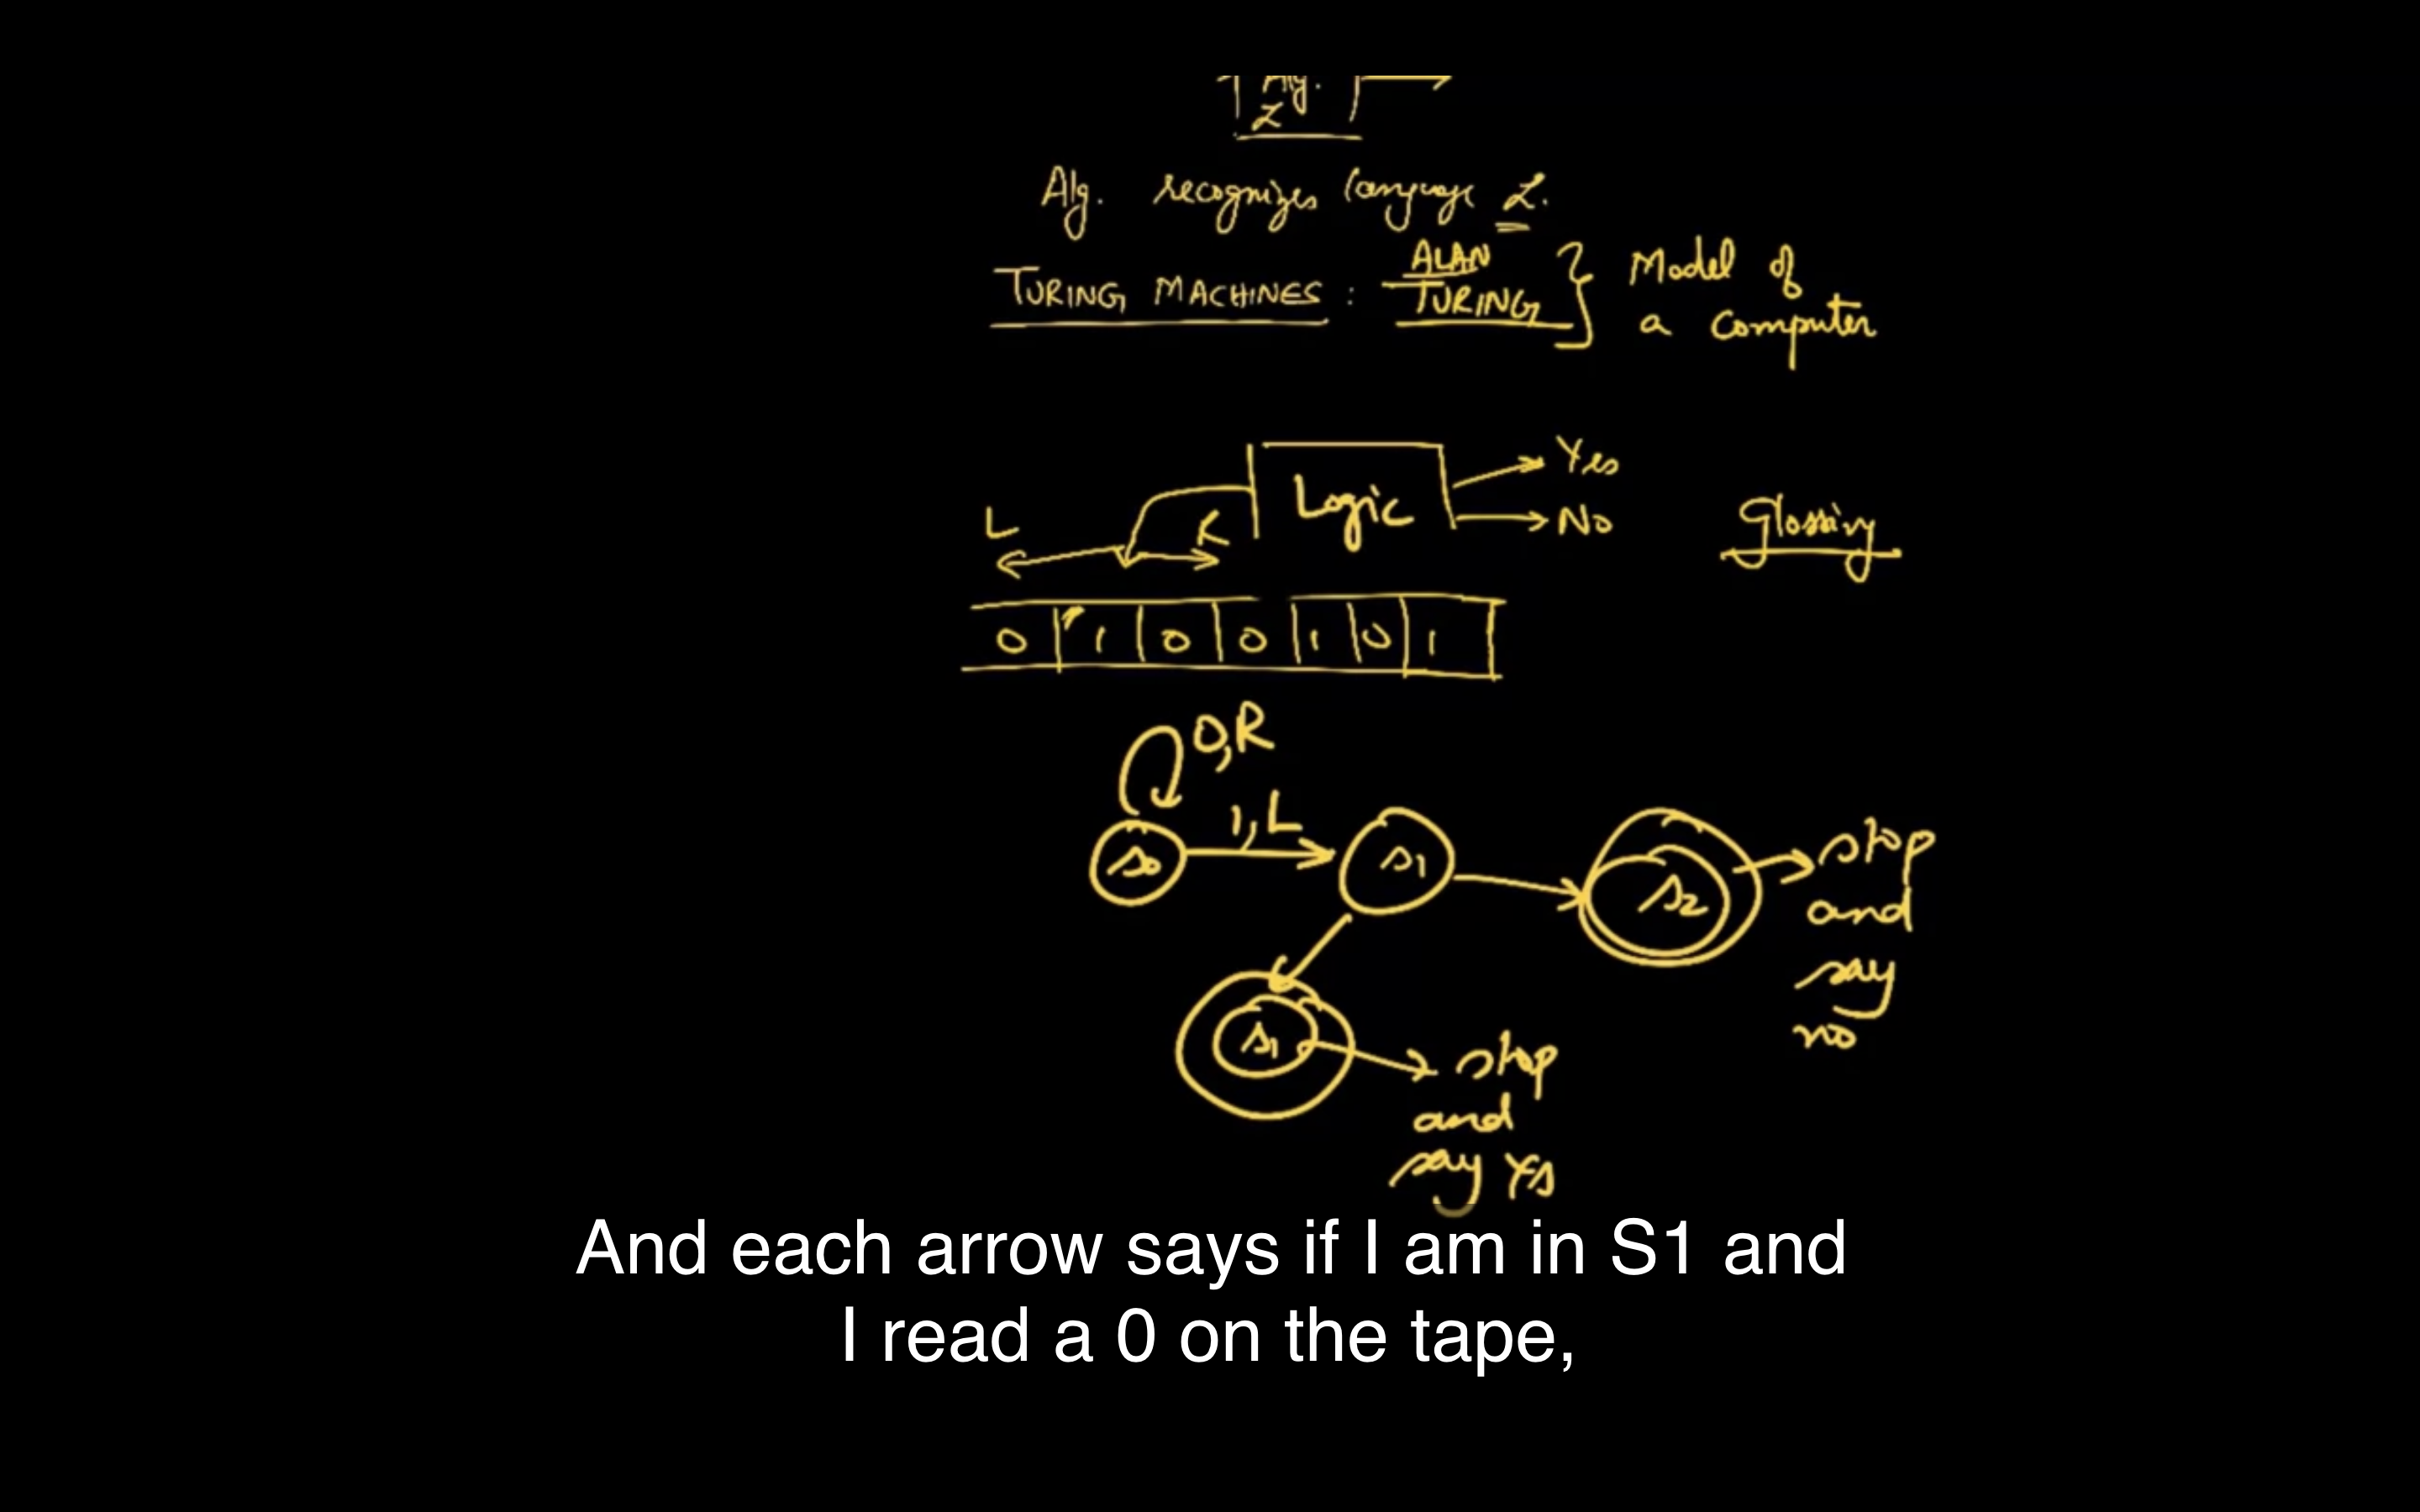 Alg.
L
Alg. recognizes language L.
TURING MACHINES : ALAN TURING } Model of a computer
Logic
Yes
No
L
Glossing
0 1 0 0 1 0 1
0,R
1,L
s0
s1
s2
stop and say no
s1
stop and say Yes
And each arrow says if I am in S1 and
I read a 0 on the tape,